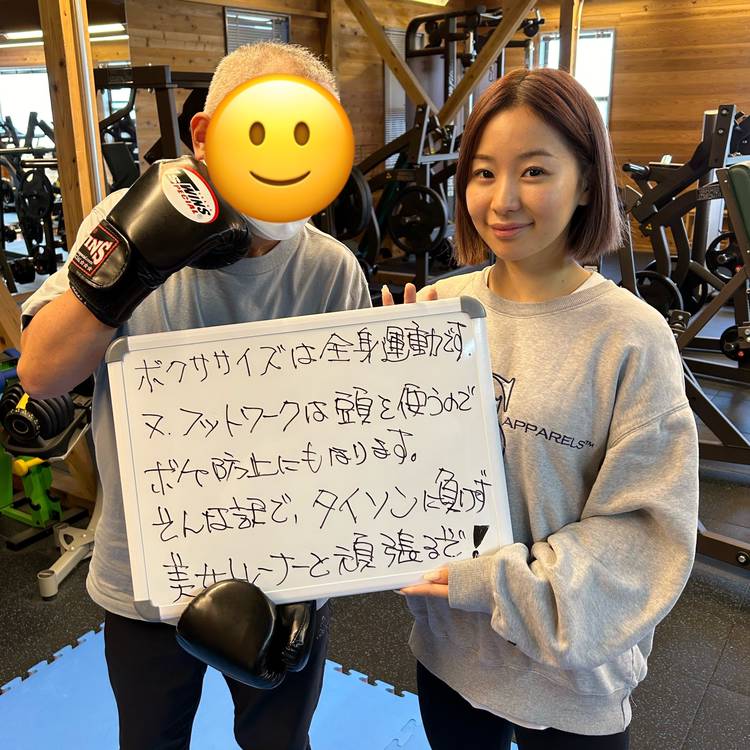 TWINS
SPECIAL
TWINS
APPARELS™
ボクササイズは全身運動です.
又.フットワークは頭を使うので
ボケ防止にもなります。
そんな訳で、タイソンに負けず
美女トレーナーと頑張るぞ!